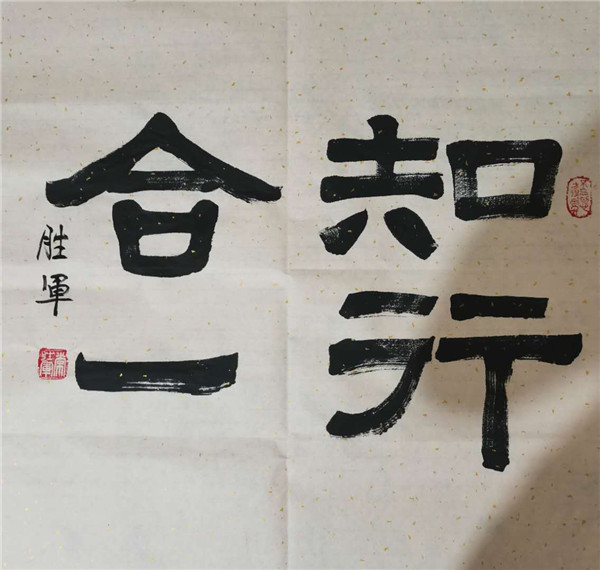 知行
合一
胜軍